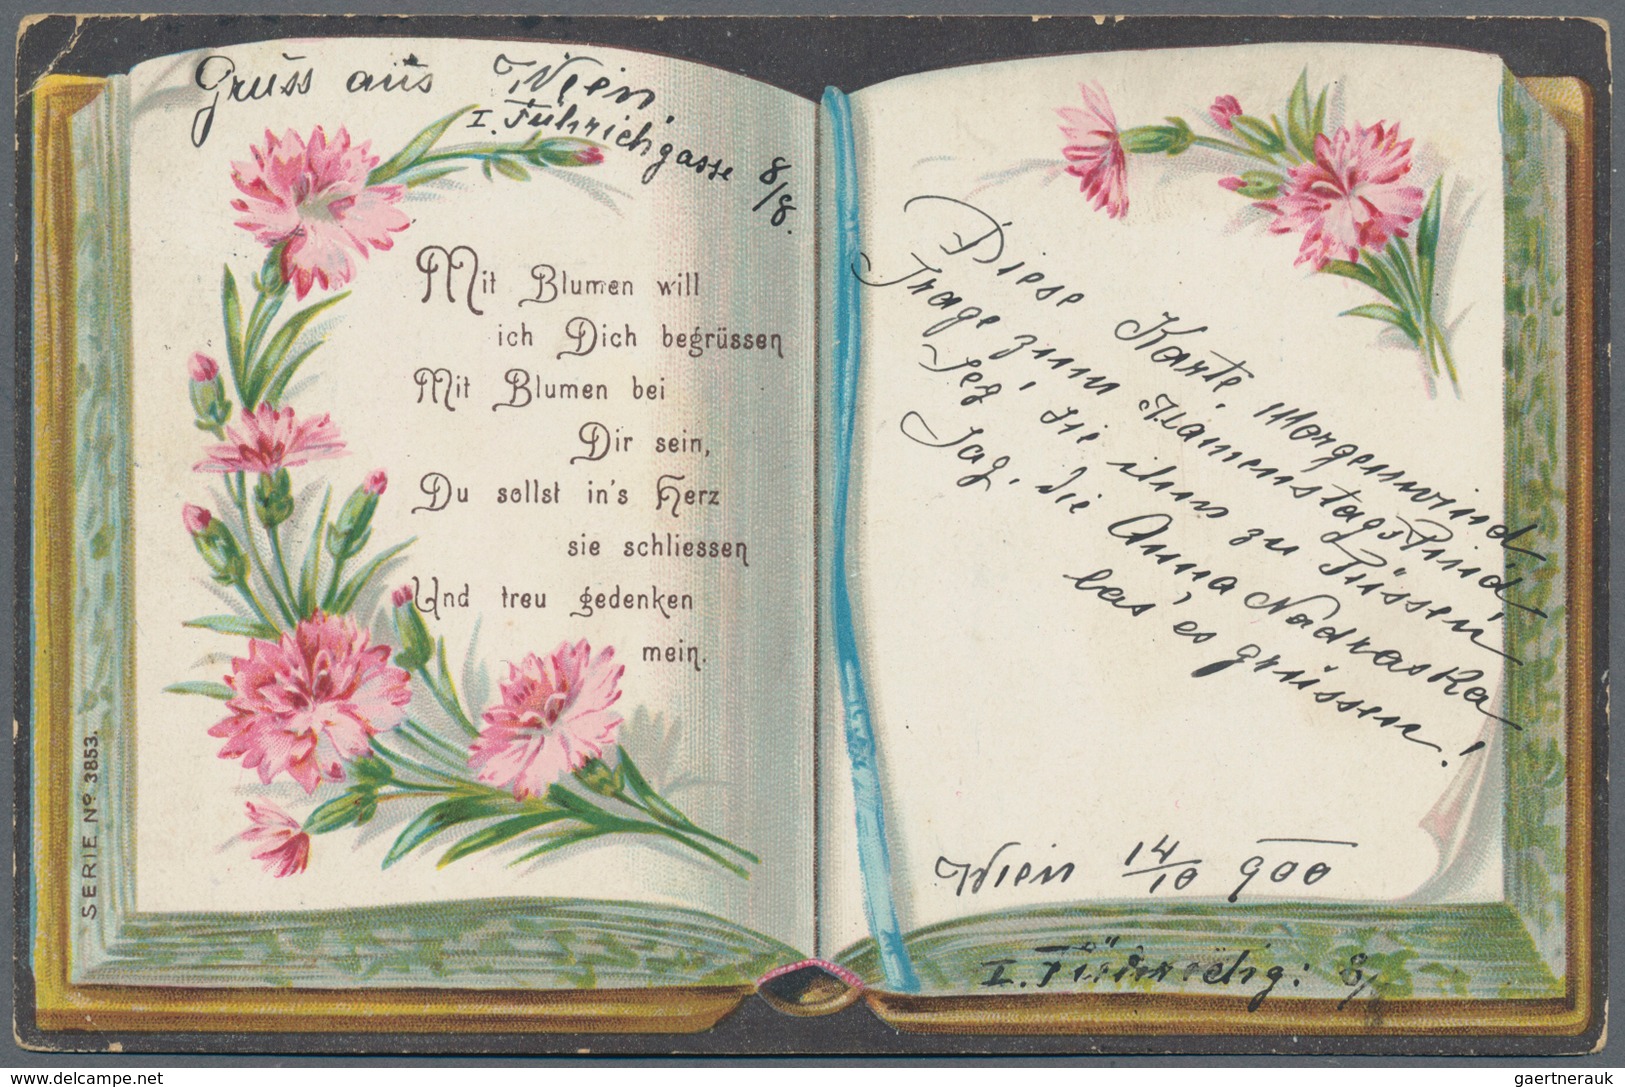 Gruss aus Wien,
I. Führichgasse 8/8.
Mit Blumen will
ich Dich begrüssen
Mit Blumen bei
Dir sein,
Du sollst in's Herz
sie schliessen
Und treu gedenken
mein.
SERIE Nº 3853.
Diese Karte, Morgenwind
Trage zum Namenstags
Leg' sie ihm zu Füssen,
Sag, die Anna Nadraska
las' es grüssen!
Wien 14/10 900
I. 8/
gaertnerauk